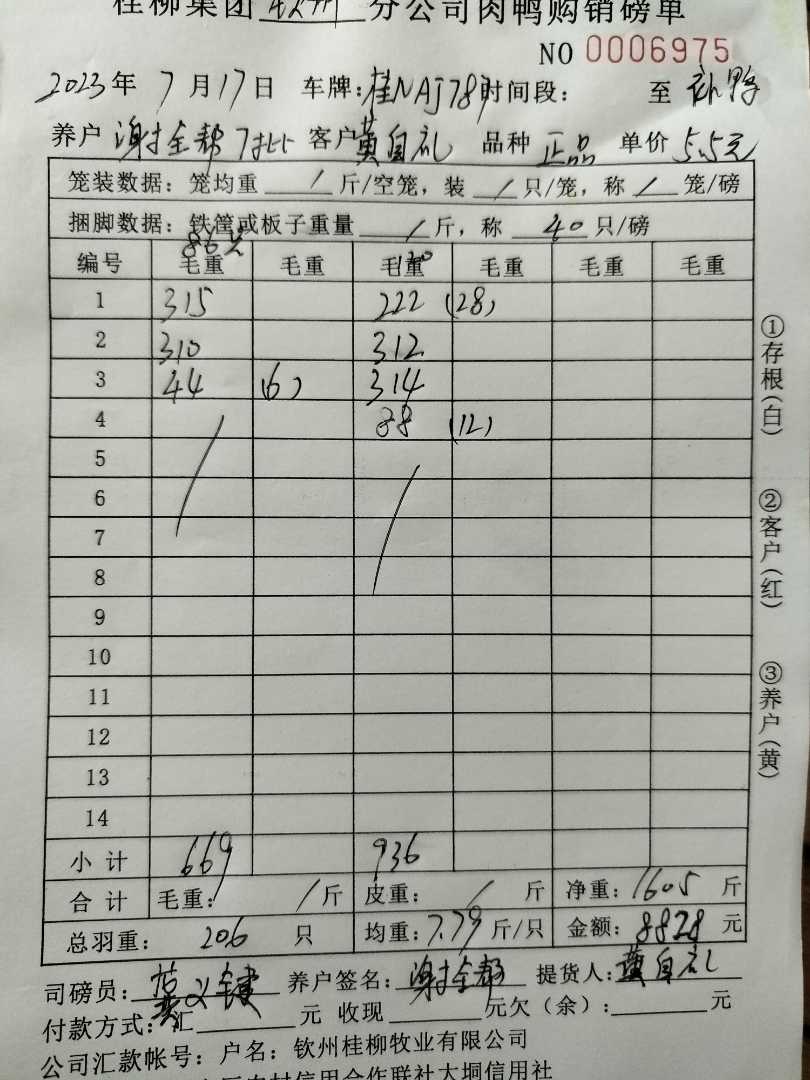 桂柳集团 钦州 分公司肉鸭购销磅单
NO 0006975
2023年 7月17日 车牌:桂NAJ789 时间段: 至 补鸭
养户 谢全帮 客户 黄自礼 品种 正品 单价 5.5元
笼装数据: 笼均重 / 斤/空笼, 装 / 只/笼, 称 / 笼/磅
捆脚数据: 铁筐或板子重量 / 斤, 称 40 只/磅
86只 120
编号 毛重 毛重 毛重 毛重 毛重 毛重
1 315 222 (28)
2 310 312
3 44 (6) 314
4 88 (12)
5
6
7
8
9
10
11
12
13
14
小计 669 936
合计 毛重: / 斤 皮重: / 斤 净重: 1605 斤
总羽重: 206 只 均重: 7.79 斤/只 金额: 8828 元
司磅员: 养户签名: 谢全帮 提货人: 黄自礼
付款方式: 汇 元 收现 元欠(余): 元
公司汇款帐号: 户名: 钦州桂柳牧业有限公司
农村信用合作联社大垌信用社
①存根(白)
②客户(红)
③养户(黄)